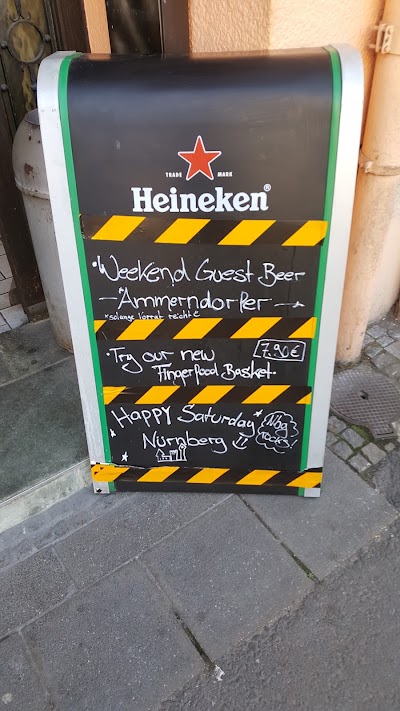 TRADE MARK
Heineken®
Weekend Guest Beer
Ammerndorfer
*solange Vorrat reicht
Try our new 7.90€
Fingerfood Basket
Happy Saturday
Nürnberg
Nbg Rocks!